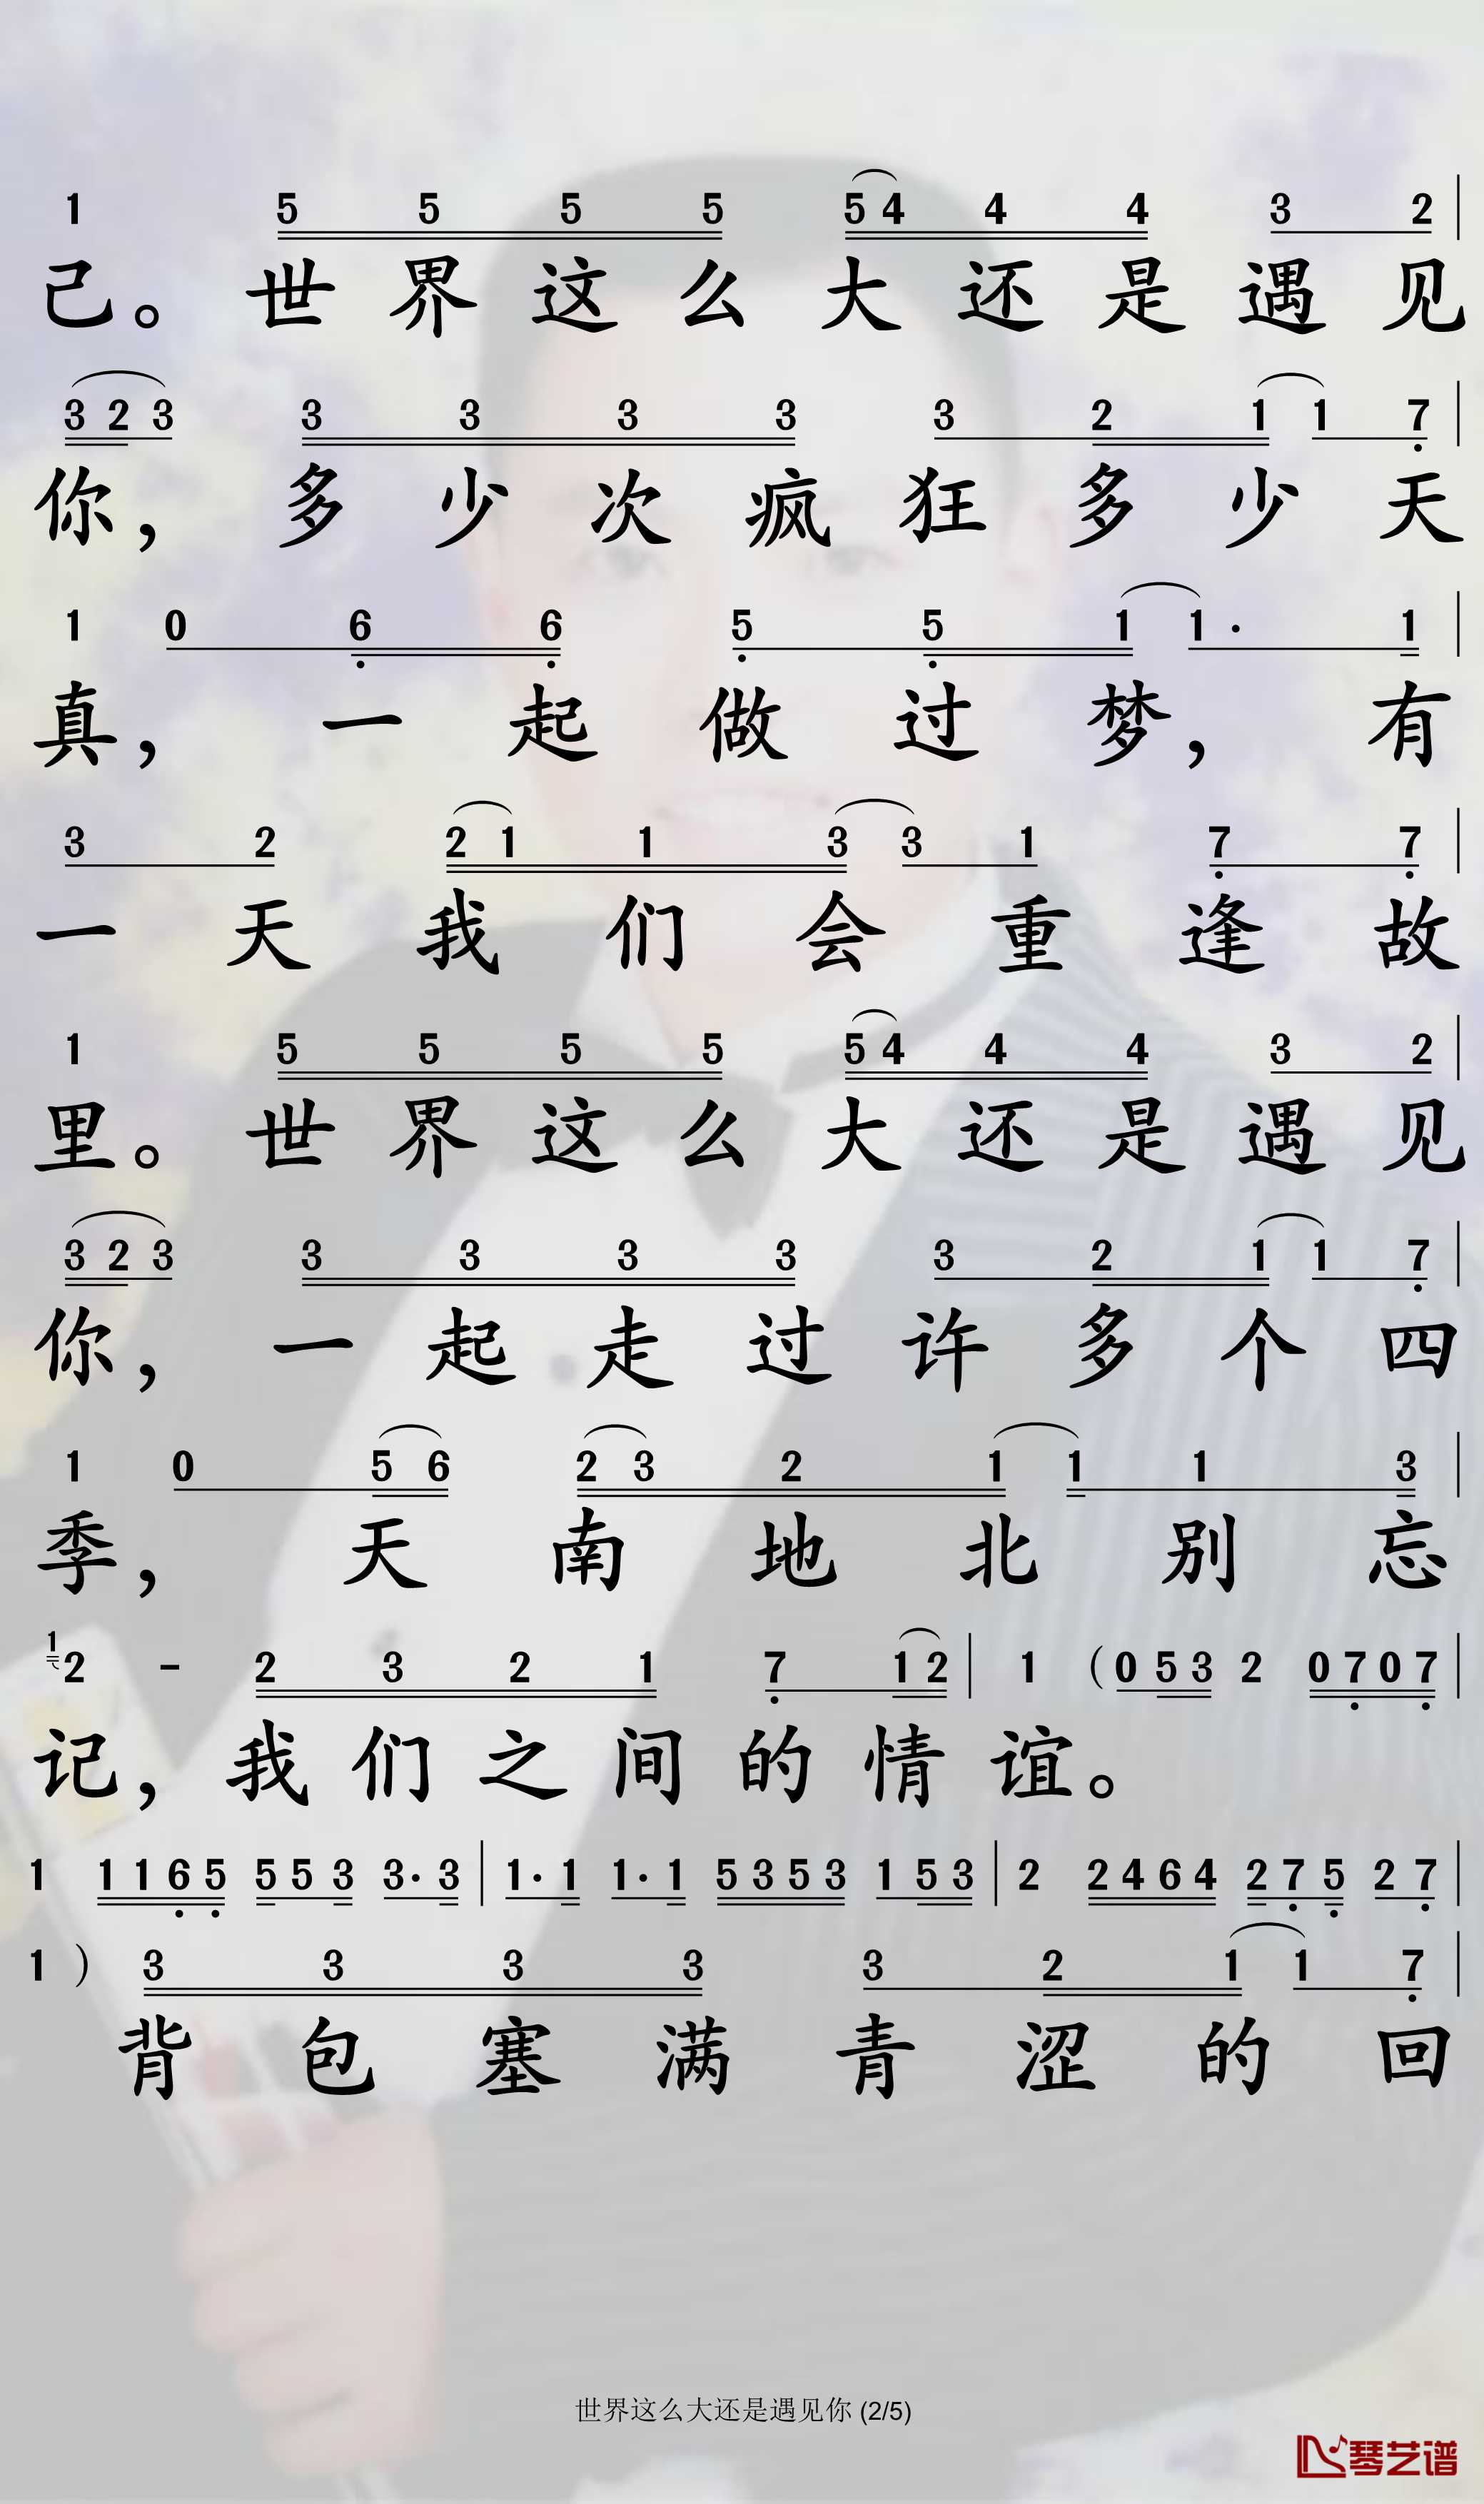 1 5 5 5 5 5 4 4 4 3 2
己。世界这么大还是遇见
3 2 3 3 3 3 3 3 2 1 1 7
你，多少次疯狂多少天
1 0 6 6 5 5 1 1· 1
真，一起做过梦，有
3 2 2 1 1 3 3 1 7 7
一天我们会重逢故
1 5 5 5 5 5 4 4 4 3 2
里。世界这么大还是遇见
3 2 3 3 3 3 3 3 2 1 1 7
你，一起走过许多个四
1 0 5 6 2 3 2 1 1 1 3
季，天南地北别忘
1 2 - 2 3 2 1 7 1 2 | 1 (0 5 3 2 0 7 0 7
记，我们之间的情谊。
1 1 1 6 5 5 5 3 3· 3 | 1· 1 1· 1 5 3 5 3 1 5 3 | 2 2 4 6 4 2 7 5 2 7
1 ) 3 3 3 3 3 2 1 1 7
背包塞满青涩的回
世界这么大还是遇见你 (2/5)
琴艺谱